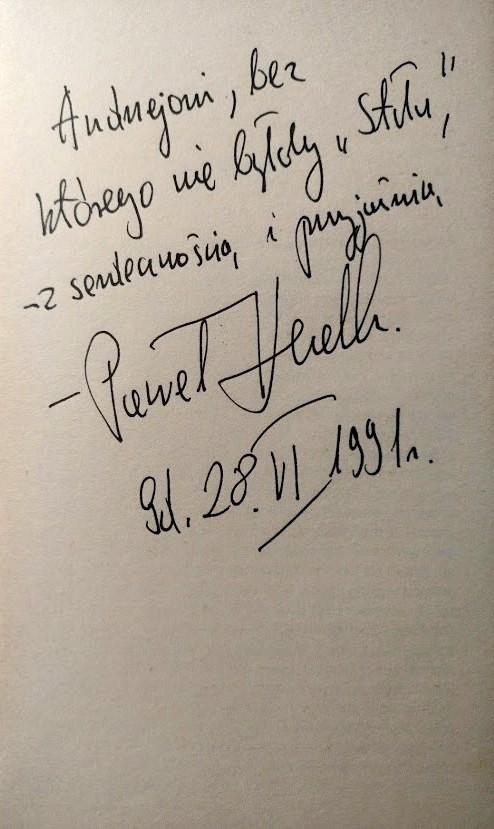 Andrzejowi, bez
którego nie byłoby „Stołu”,
- z serdecznością i przyjaźnią,
- Paweł Huelle.
Gd. 28.VI 1991r.